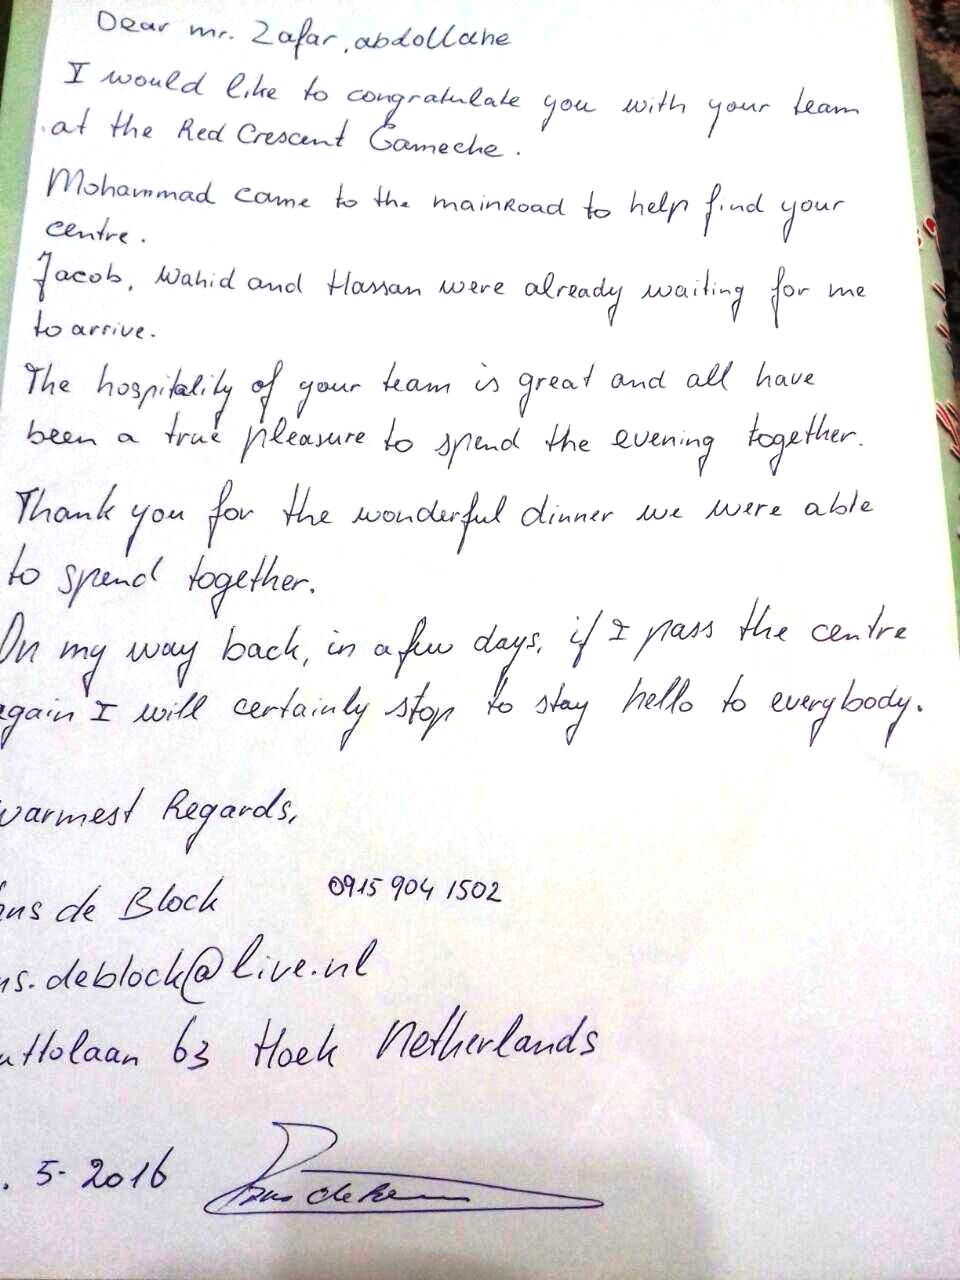 Dear mr. Zafar, abdollahe
I would like to congratulate you with your team
at the Red Crescent Gameche.
Mohammad came to the mainRoad to help find your
centre.
Jacob, Wahid and Hassan were already waiting for me
to arrive.
The hospitality of your team is great and all have
been a true pleasure to spend the evening together.
Thank you for the wonderful dinner we were able
to spend together.
On my way back, in a few days, if I pass the centre
again I will certainly stop to stay hello to everybody.
warmest Regards,
ns de Block 0915 904 1502
ns.deblock@live.nl
ttolaan 63 Hoek Netherlands
. 5-2016